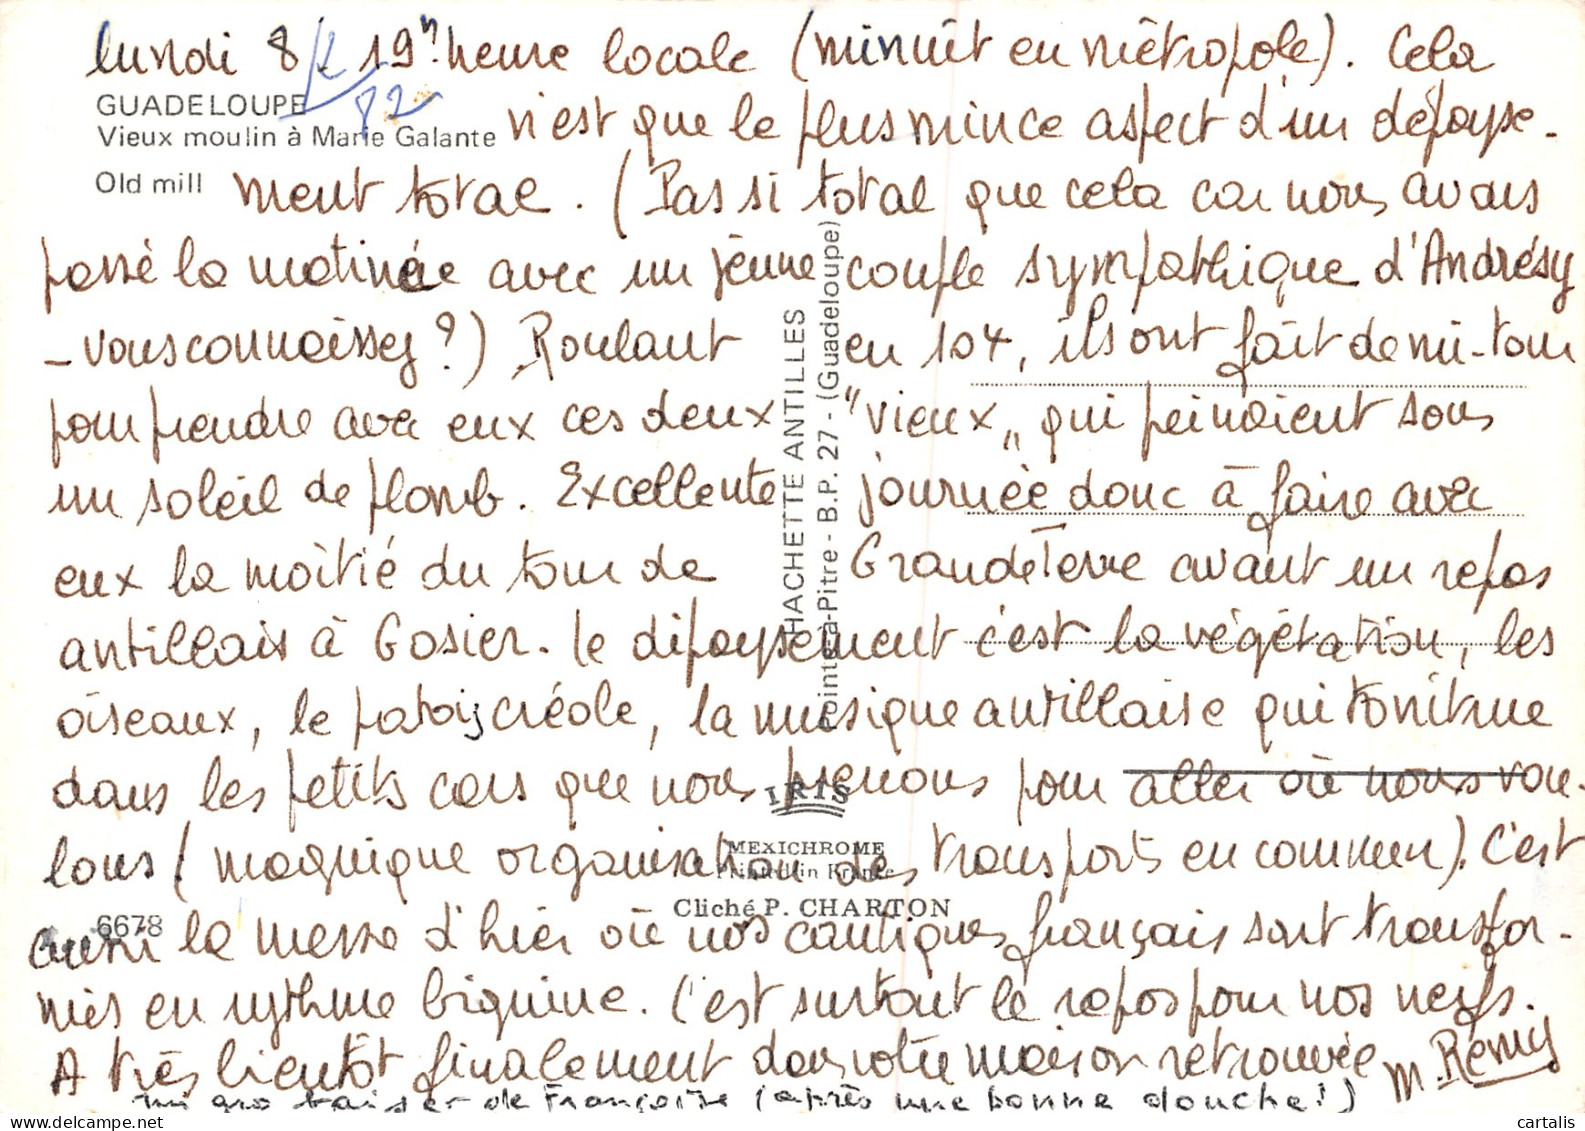 lundi 8/2 19h heure locale (minuit en métropole). Cela
82
GUADELOUPE
Vieux moulin à Marie Galante
Old mill
n'est que le plus mince aspect d'un dépayse-
ment total. (Pas si total que cela car nous avons
passé la matinée avec un jeune couple sympathique d'Andrésy
- vous connaissez ?) Roulant en 104, ils ont fait demi-tour
pour prendre avec eux ces deux "vieux" qui peinaient sous
un soleil de plomb. Excellente journée donc à faire avec
eux la moitié du tour de Grande Terre avant un repos
antillais à Gosier. le dépaysement c'est la végétation, les
oiseaux, le patois créole, la musique antillaise qui tonitrue
dans les petits cars que nous prenons pour aller où nous vou-
lons (magnifique organisation des transports en commun). C'est
aussi la messe d'hier où nos cantiques français sont transfor-
més en rythme biguine. C'est surtout le repos pour nos nerfs.
A très bientôt finalement dans votre maison retrouvée
M. Rémy
un gros baiser de Françoise (après une bonne douche!)
HACHETTE ANTILLES
Pointe-à-Pitre - B.P. 27 - (Guadeloupe)
IRIS
MEXICHROME
Printed in France
Cliché P. CHARTON
6678
cartalis